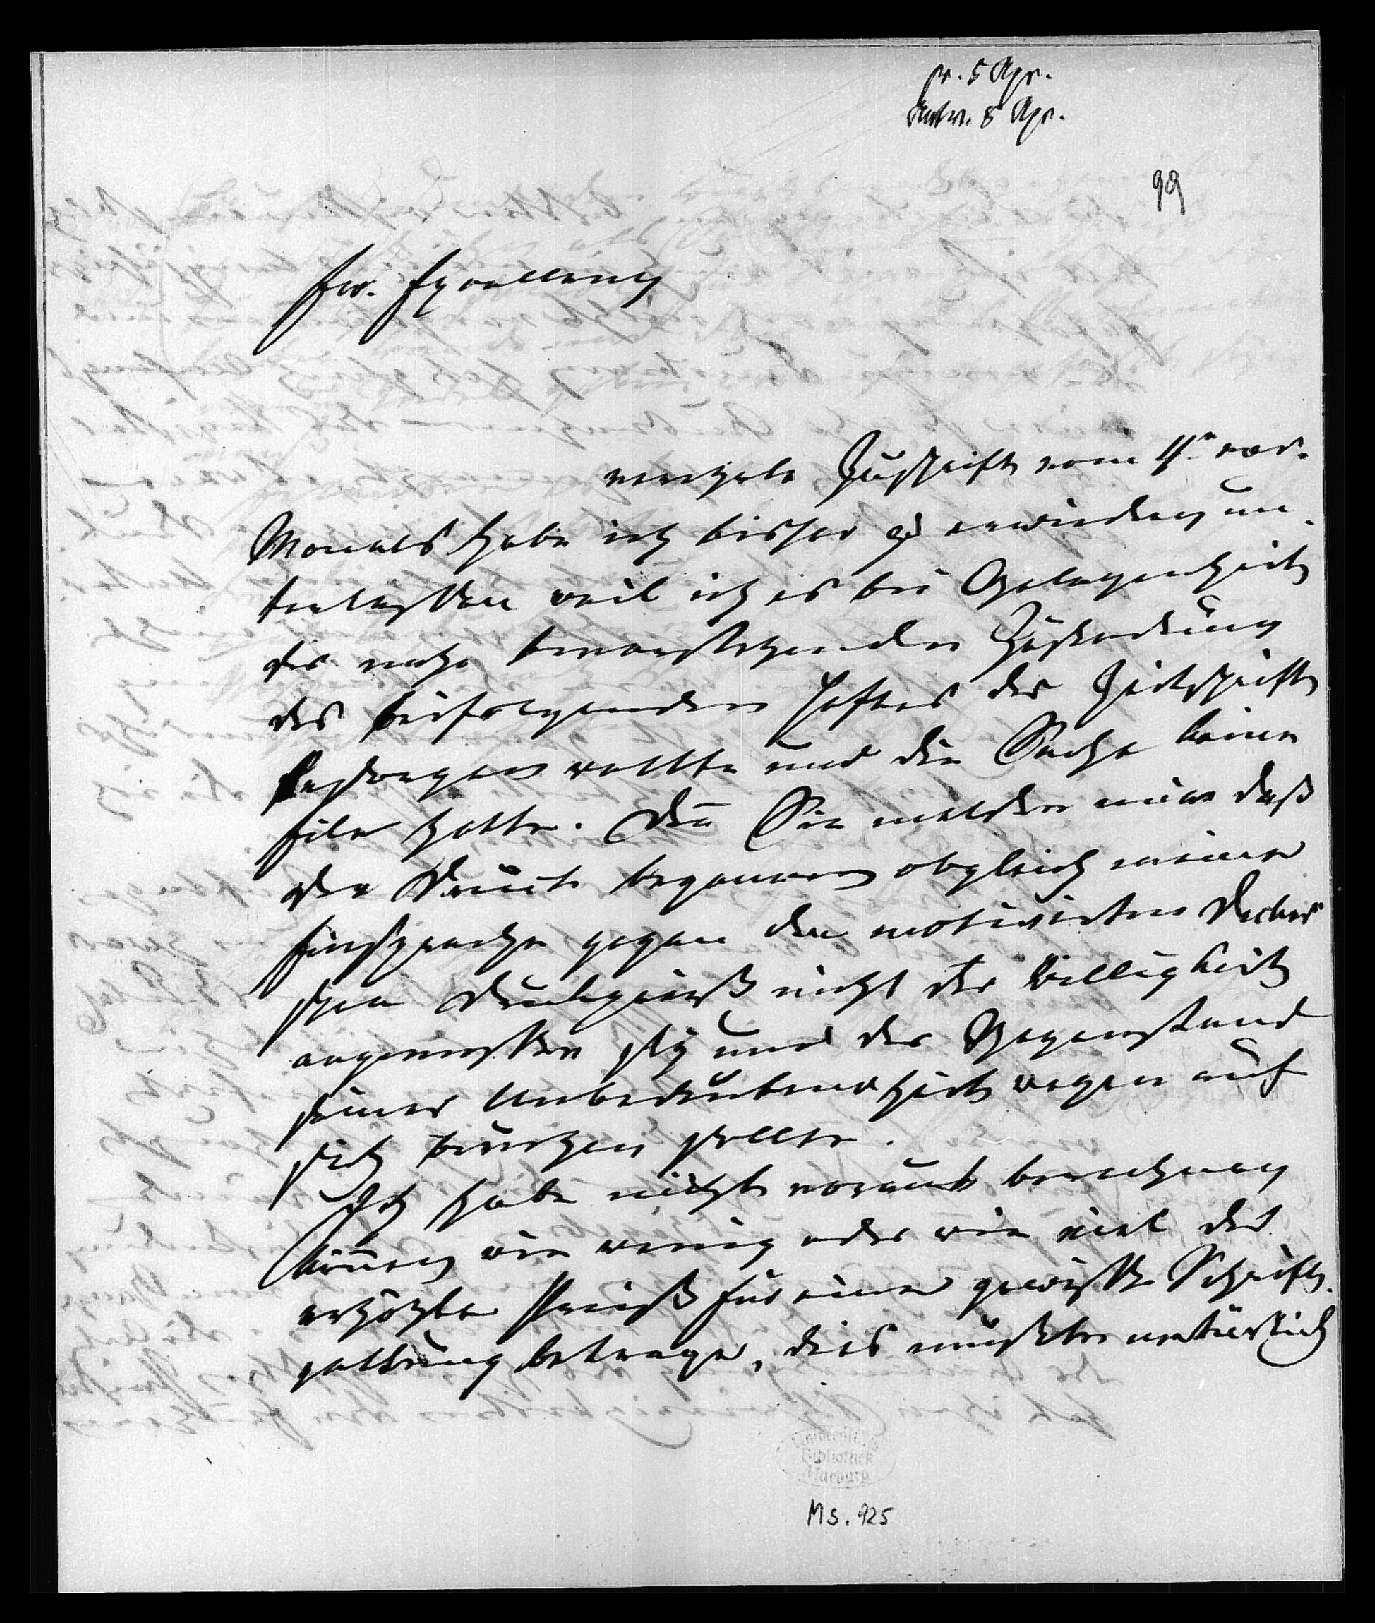 pr. 5 Apr.
Antw. 8 Apr.
99
Ew. Excellenz
verehrte Zuschrift vom 4n vor.
Monats habe ich bisher zu erwiedern un-
terlassen weil ich es bei Gelegenheit
der nahe bevorstehenden Zusendung
des beifolgenden Heftes der Zeitschrift
besorgen wollte und die Sache keine
Eile hatte. Denn Sie melden mir daß
der Druck begonnen obgleich meine
Einsprache gegen den motivirten
schen Druckpreiß nicht der Billigkeit
angemessen sey und der Gegenstand
seiner Unbedeutendheit wegen auf
sich beruhen sollte.
Ich habe nicht voraus berechnen
können wie wenig oder wie viel der
erhöhte Preiß für eine gewisse Schrift-
gattung betrage, dies mußte natürlich
Universitäts
Bibliothek
Marburg
Ms. 925